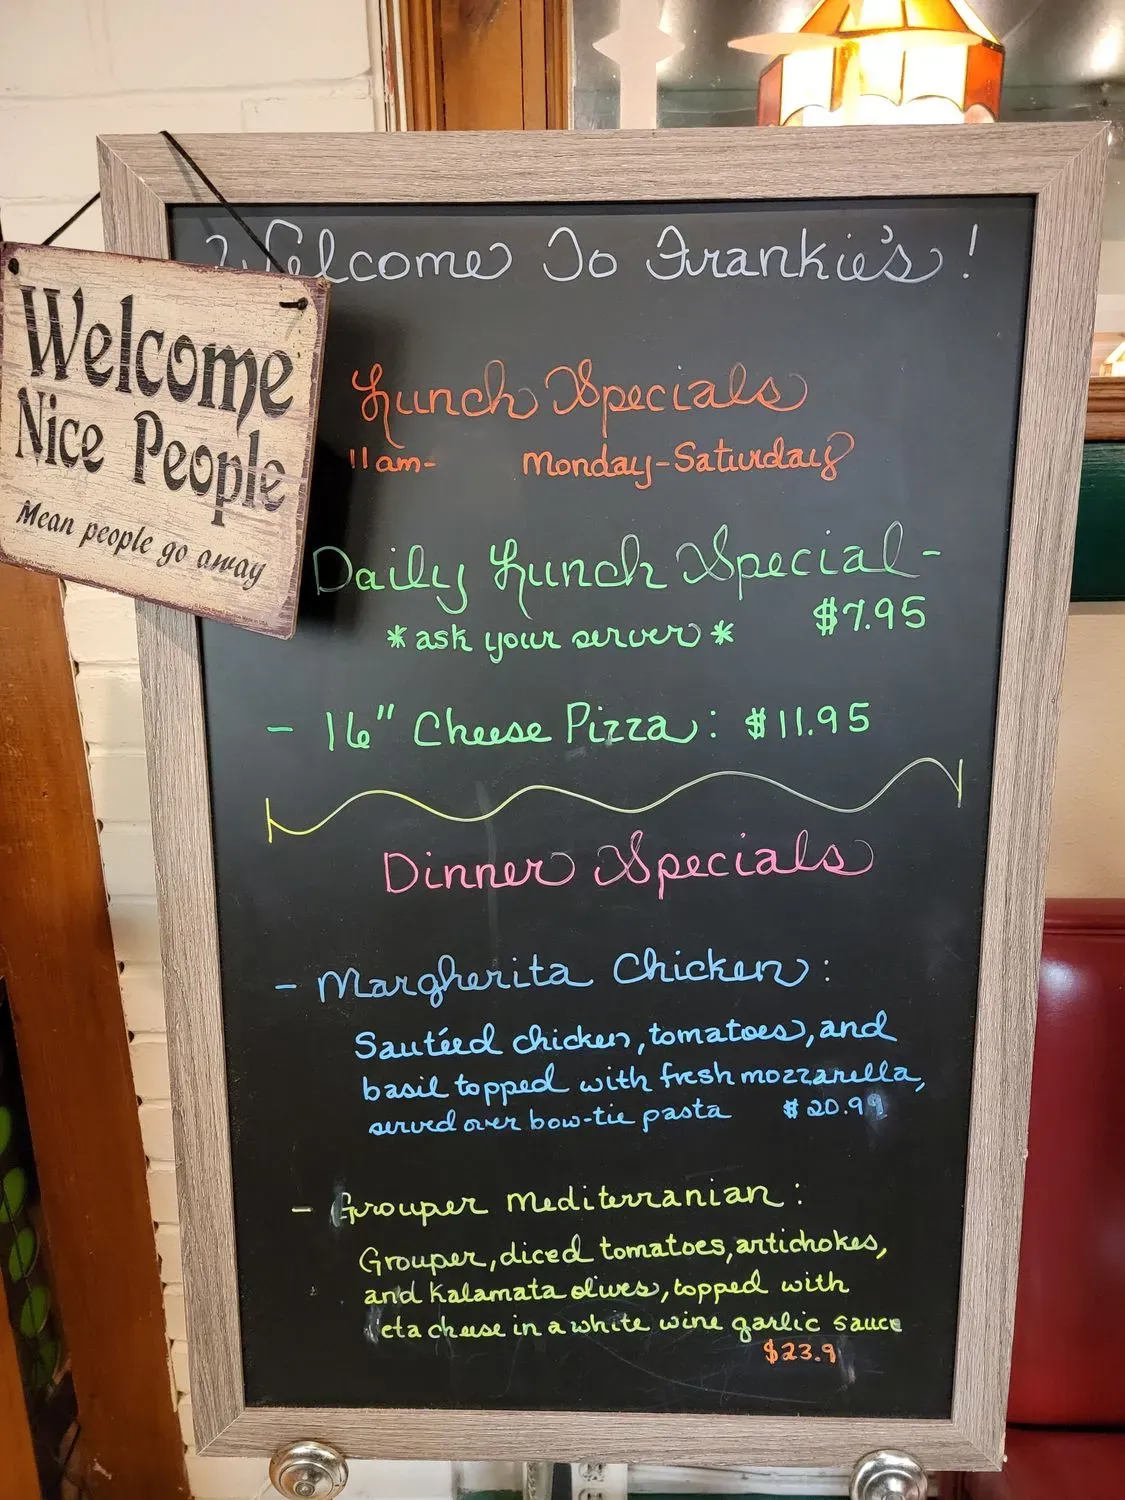 Welcome To Frankie's!
Welcome
Nice People
Mean people go away
Lunch Specials
11am- Monday-Saturday
Daily Lunch Special -
*ask your server* $7.95
- 16" Cheese Pizza: $11.95
Dinner Specials
- Margherita Chicken:
Sautéed chicken, tomatoes, and
basil topped with fresh mozzarella,
served over bow-tie pasta $20.99
- Grouper Mediterranian:
Grouper, diced tomatoes, artichokes,
and Kalamata olives, topped with
eta cheese in a white wine garlic sauce
$23.9